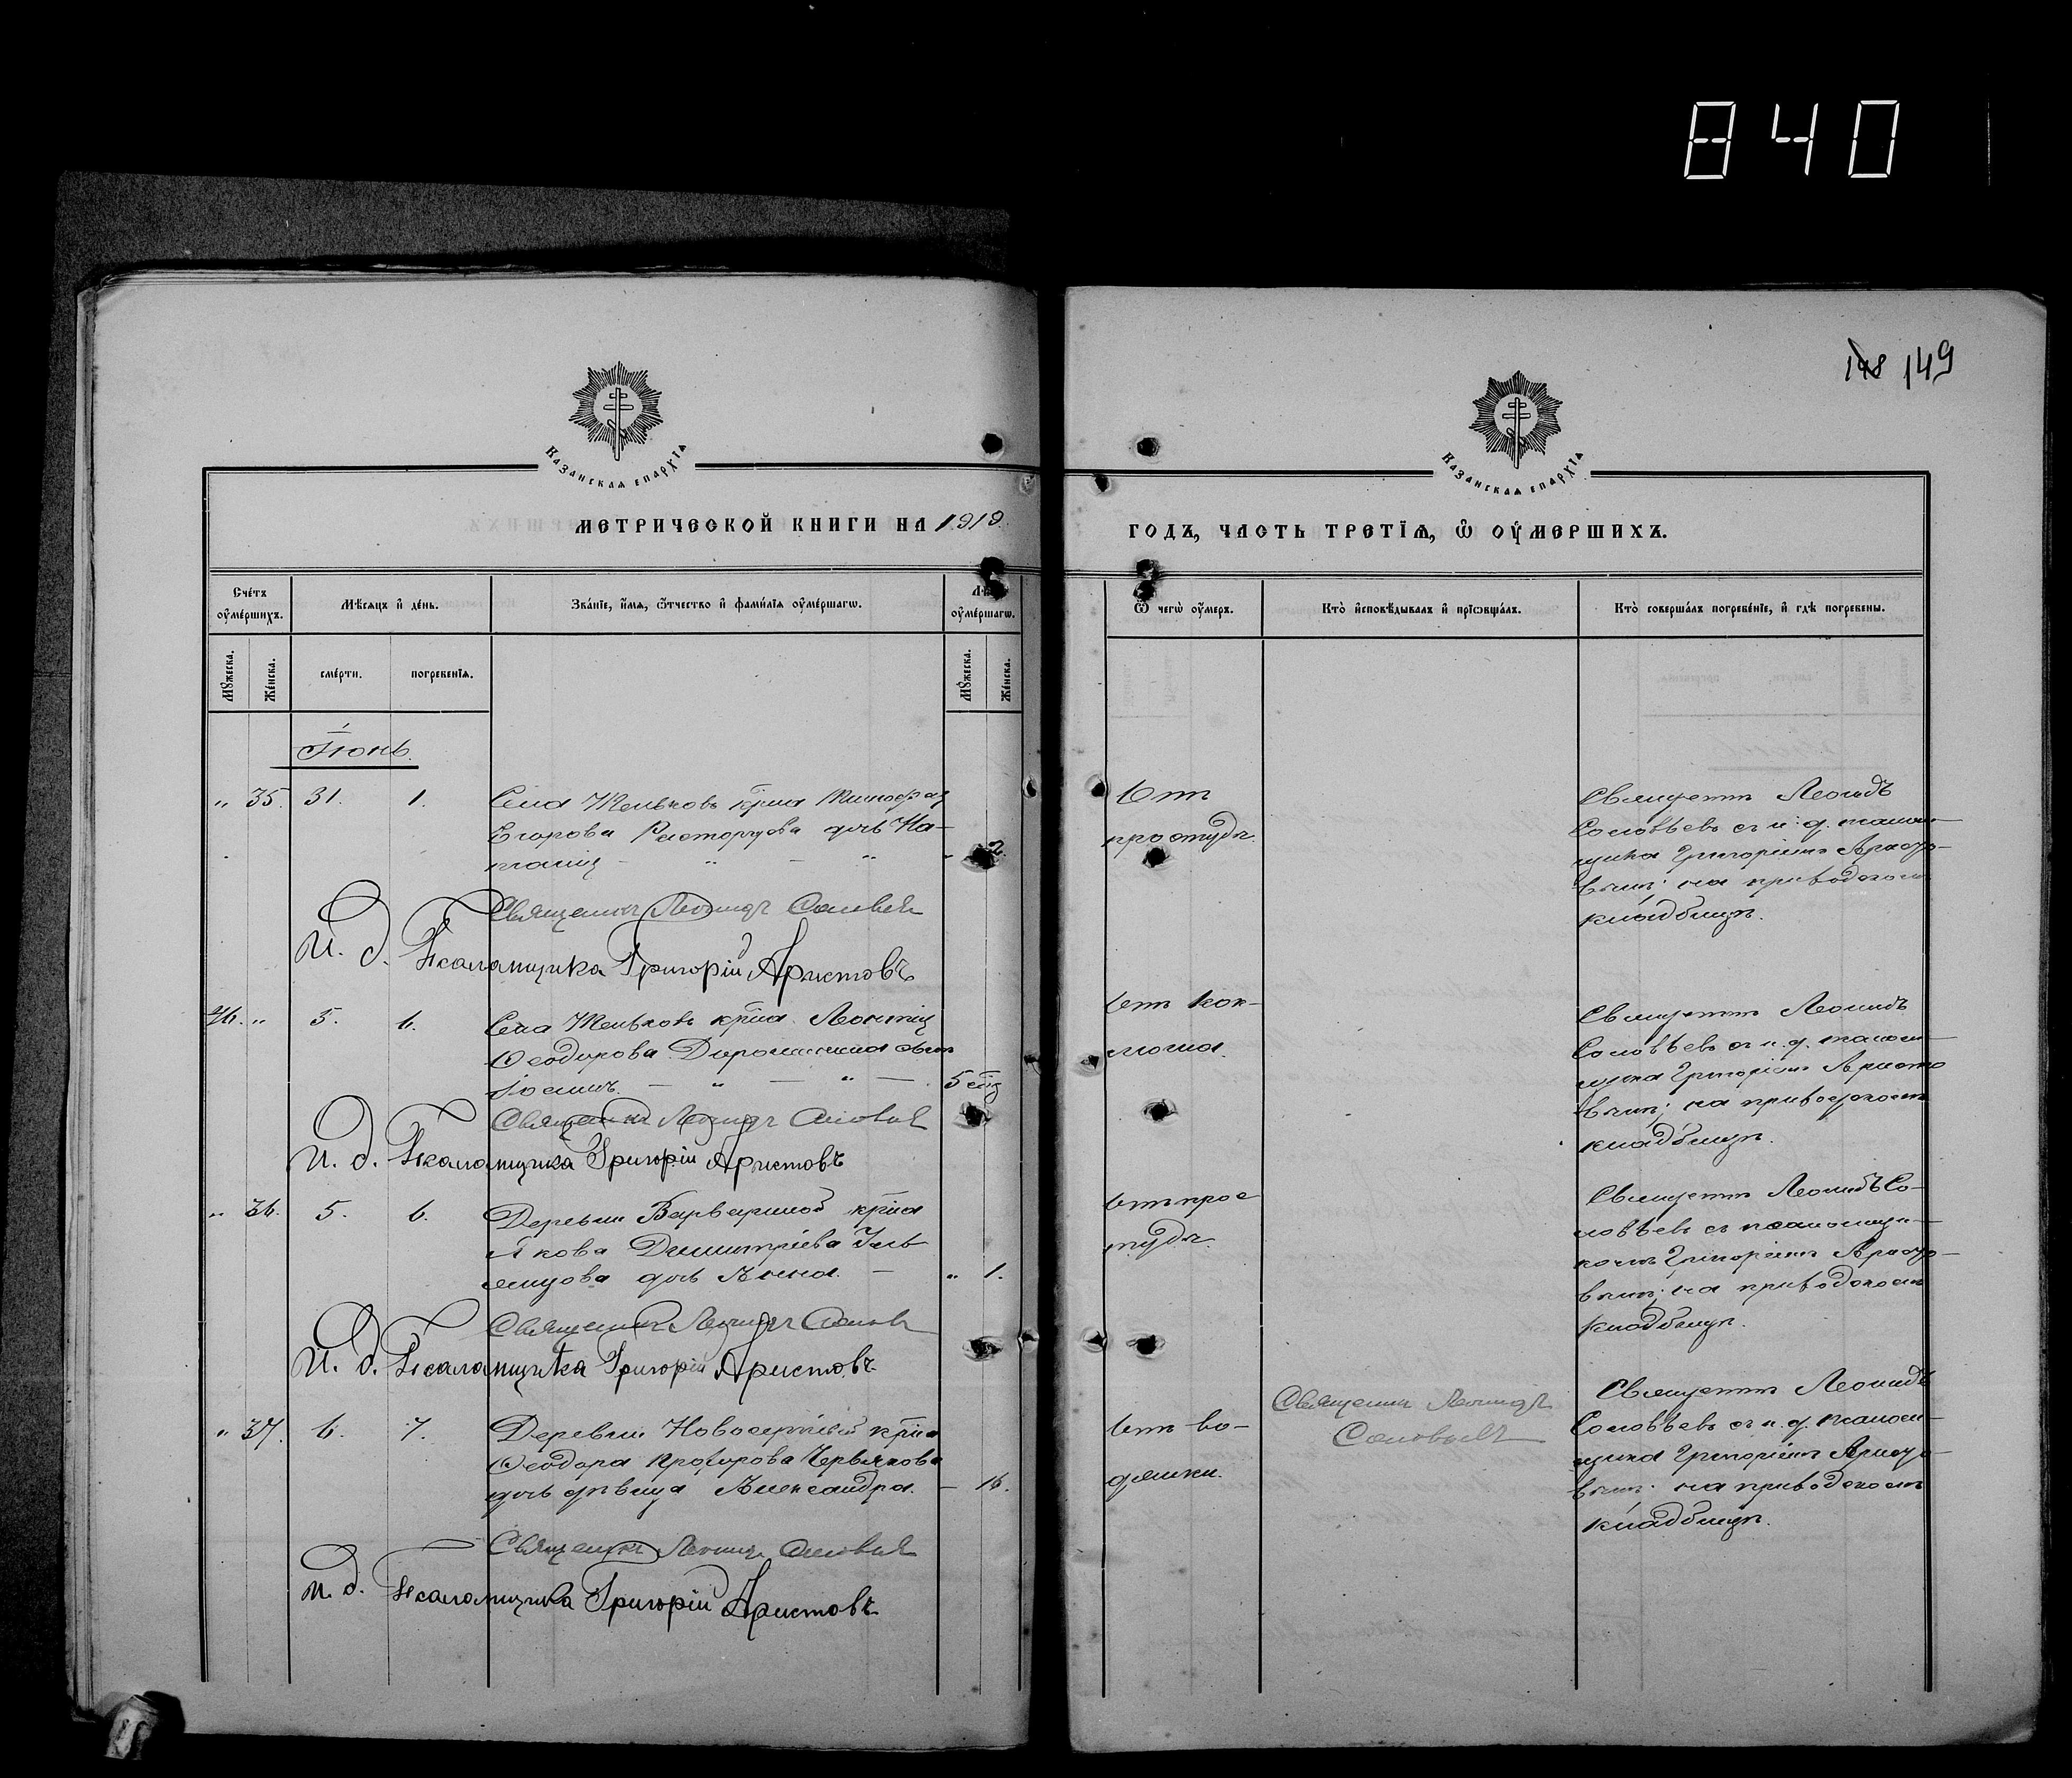 840
148 149
Казанская епархїѧ
Казанская епархїѧ
МЕТРИЧЕСКОЙ КНИГИ НА 1919
ГОДЪ, ЧАСТЬ ТРЕТЇѦ, Ѽ ОУМЕРШИХЪ.
Счетъ оумершихъ.
Мѣсяцъ и день.
Званїе, имя, отчество и фамилїя оумершагѡ.
оумершагѡ.
Ѿ чегѡ оумеръ.
Кто исповѣдывалъ и прїѡбщалъ.
Кто совершалъ погребенїе, и гдѣ погребены.
Мужеска.
Женска.
смерти.
погребенїя.
Мужеска.
Женска.
Іюнь.
„ 35. 31. 1.
Села крна
Егорова Расторгуева дочь На-
талія 2.
Отъ
простуды.
Священникъ Леонидъ
Соловьевъ съ и. д. псалом-
щика Григоріемъ Аристо-
вымъ; на приходскомъ
кладбищѣ.
Священникъ Леонидъ Соловьевъ
И. д. Псаломщика Григорій Аристовъ
46. „ 5. 6.
Села крна Леонтія
Ѳеодорова сынъ
5
Отъ кок-
люша.
Священникъ Леонидъ
Соловьевъ съ и. д. псалом-
щика Григоріемъ Аристо-
вымъ; на приходскомъ
кладбищѣ.
Священникъ Леонидъ Соловьевъ
И. д. Псаломщика Григорій Аристовъ
„ 36. 5. 6.
Деревни Варвариной крна
Якова Димитріева
дочь Анна. „ 1.
Отъ прос
туды.
Священникъ Леонидъ Со-
ловьевъ съ псаломщи-
комъ Григоріемъ Аристо-
вымъ; на приходскомъ
кладбищѣ.
Священникъ Леонидъ Соловьевъ
И. д. Псаломщика Григорій Аристовъ
„ 37. 6. 7.
Деревни крна
Ѳеодора Прохорова Червякова
дочь дѣвица Александра. 16.
Отъ во-
дянки.
Священникъ Леонидъ
Соловьевъ
Священникъ Леонидъ
Соловьевъ съ и. д. псалом-
щика Григоріемъ Аристо-
вымъ; на приходскомъ
кладбищѣ.
Священникъ Леонидъ Соловьевъ
И. д. Псаломщика Григорій Аристовъ